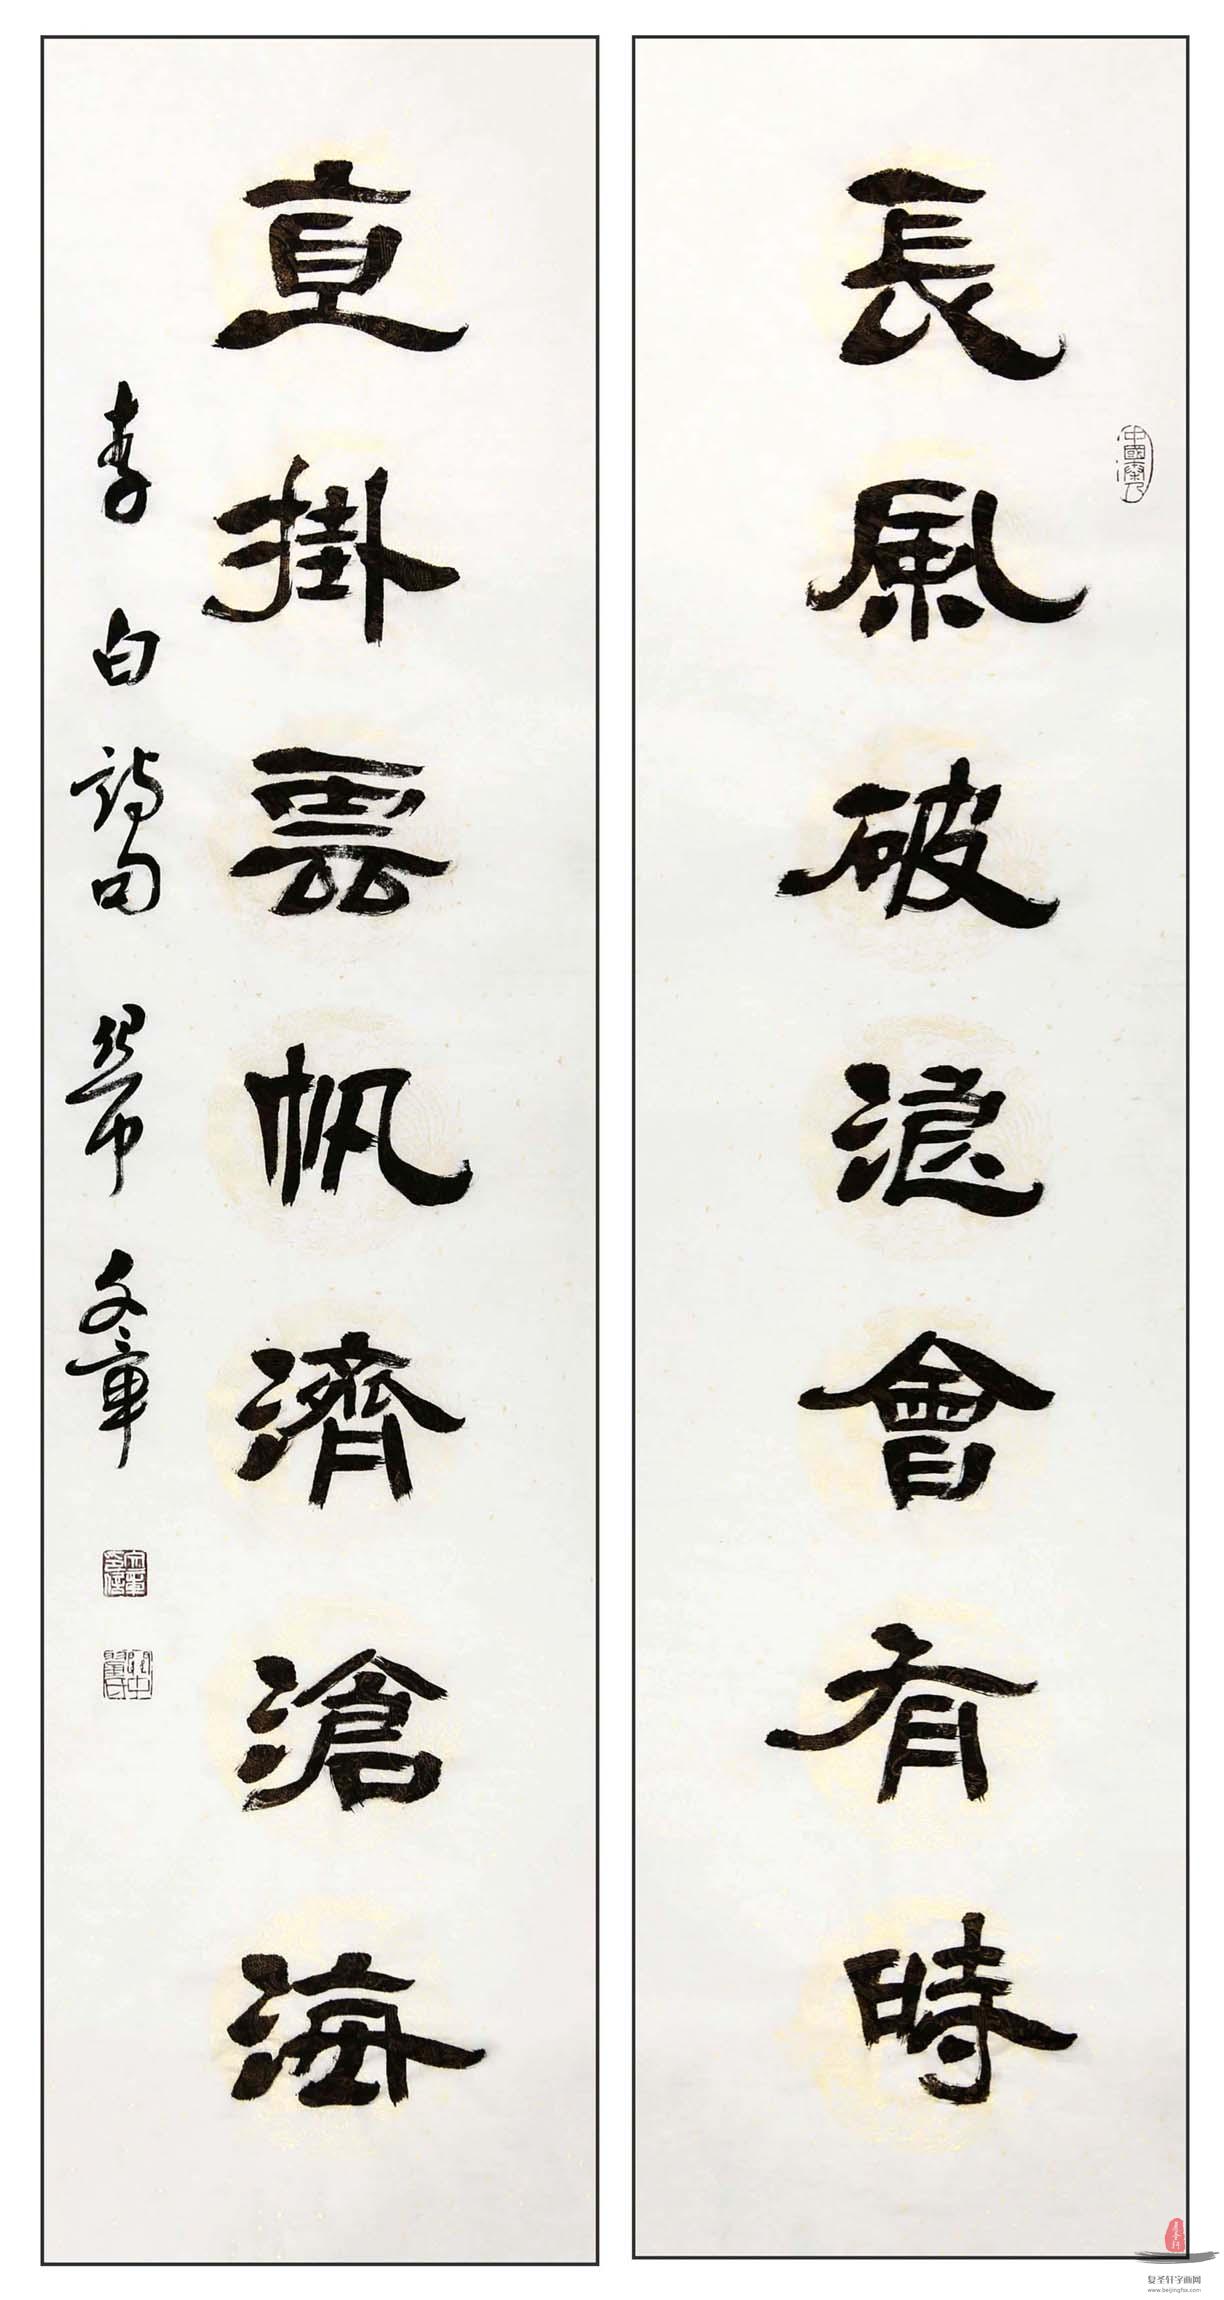 長風破浪會有時
直掛雲帆濟滄海
李白詩句
文章
复圣轩字画网
www.beijingfsx.com